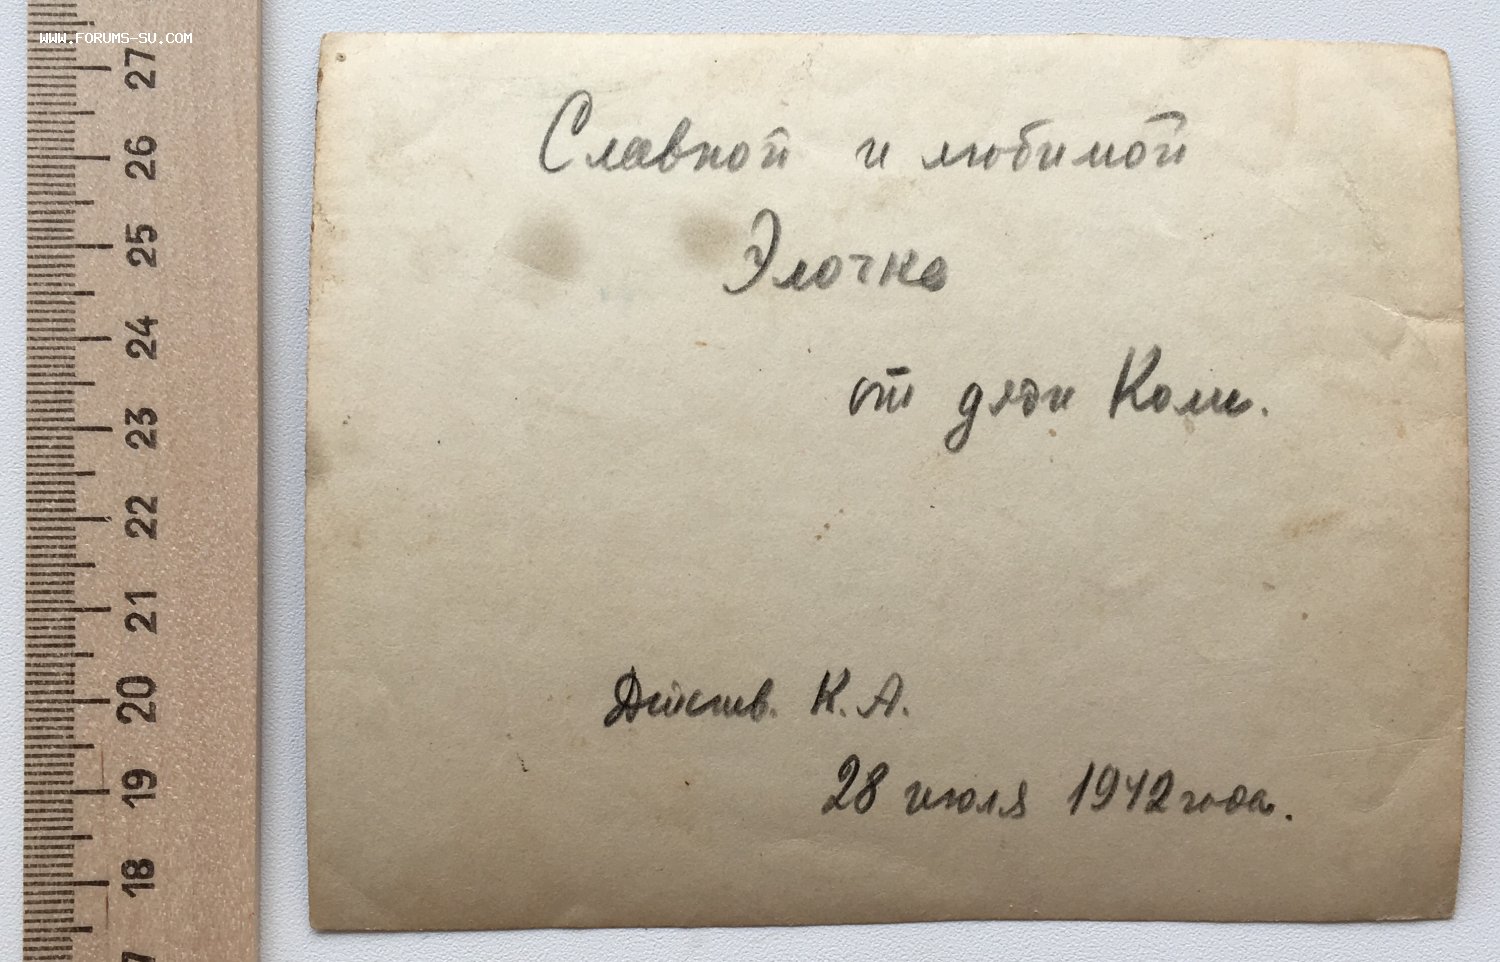 WWW.FORUMS-SU.COM
27
26
25
24
23
22
21
20
19
18
7
Славной и любимой
Элочке
от дяди Коли.
К. А.
28 июля 1942 года.